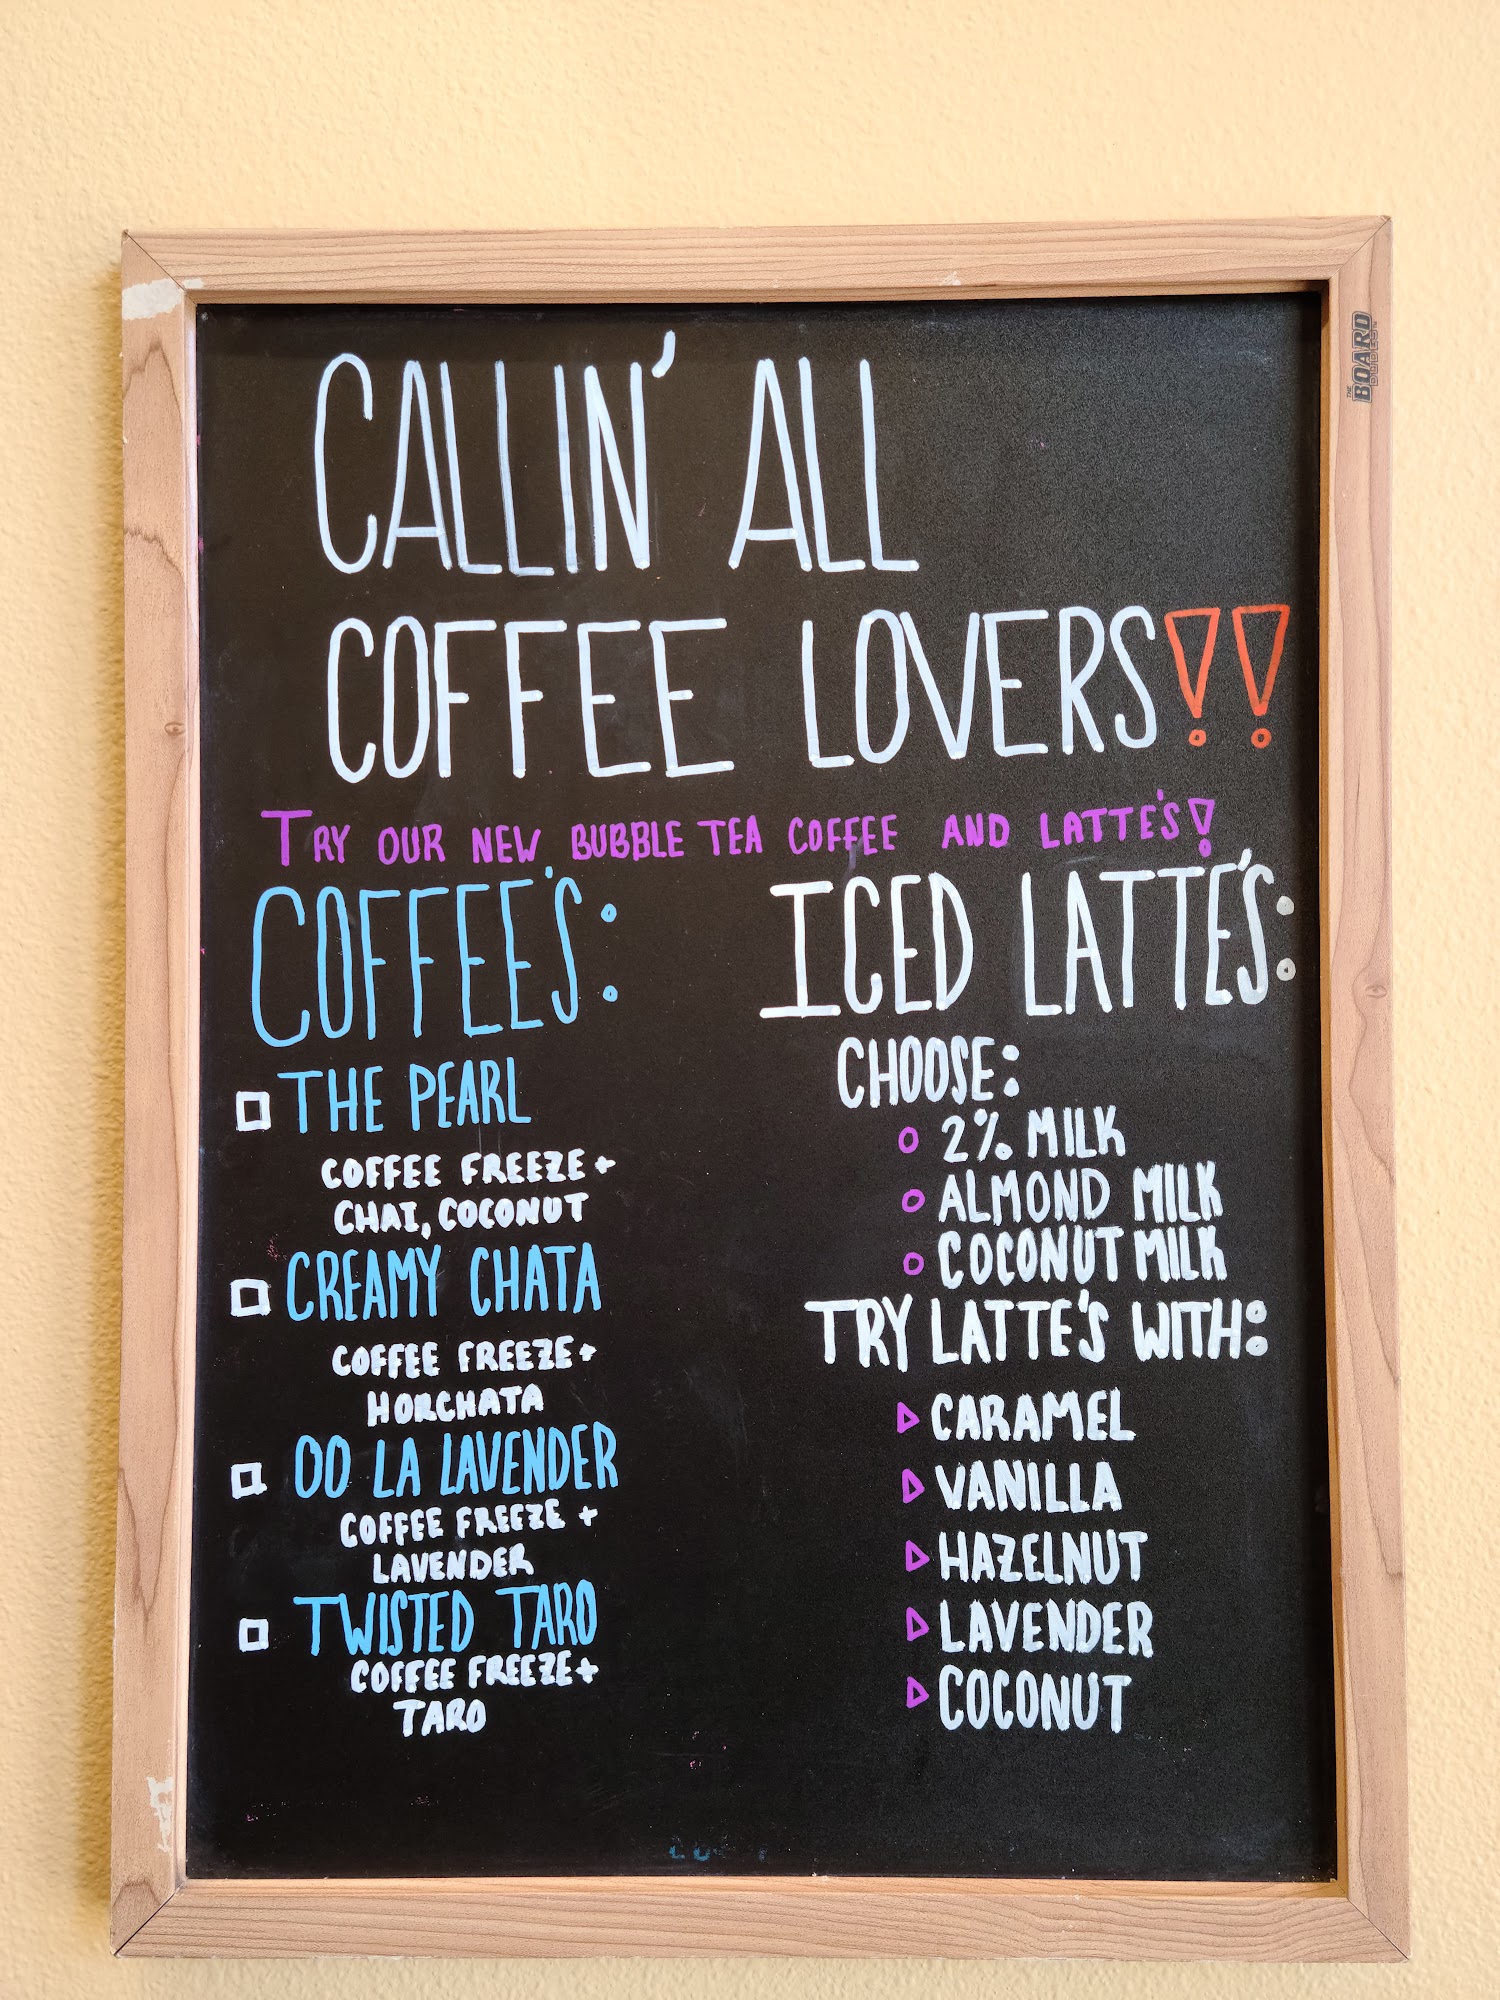 CALLIN' ALL
COFFEE LOVERS!!
TRY OUR NEW BUBBLE TEA COFFEE AND LATTE'S!
COFFEE'S:
THE PEARL
COFFEE FREEZE +
CHAI, COCONUT
CREAMY CHATA
COFFEE FREEZE +
HORCHATA
OO LA LAVENDER
COFFEE FREEZE +
LAVENDER
TWISTED TARO
COFFEE FREEZE +
TARO
ICED LATTE'S:
CHOOSE:
2% MILK
ALMOND MILK
COCONUT MILK
TRY LATTE'S WITH:
CARAMEL
VANILLA
HAZELNUT
LAVENDER
COCONUT
THE BOARD DUDES